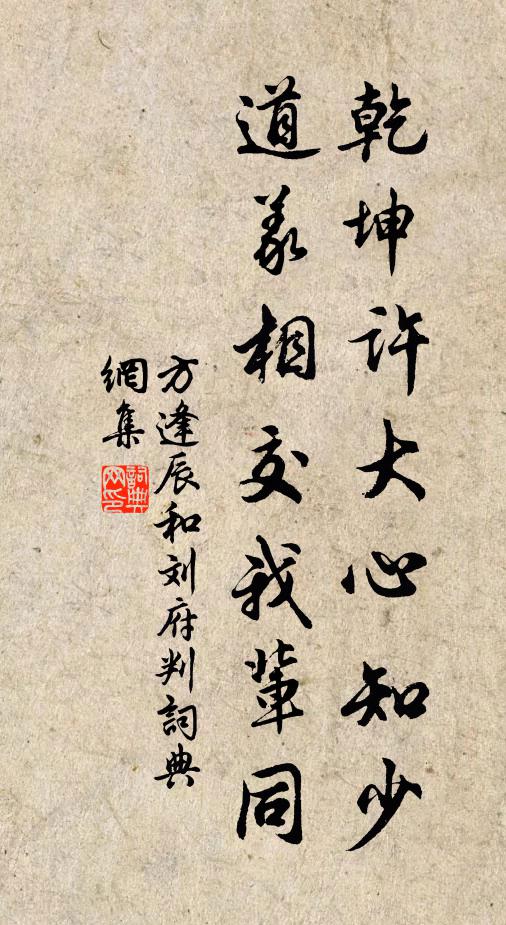 乾坤許大心知少
道義相交我輩同
方逢辰和刘府判詞典
網集
詞典
网印